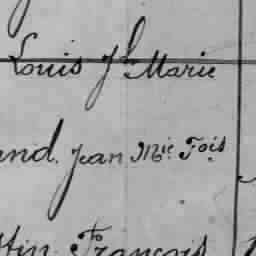 Louis Jh Marie
and. Jean Mie Fois
tin François